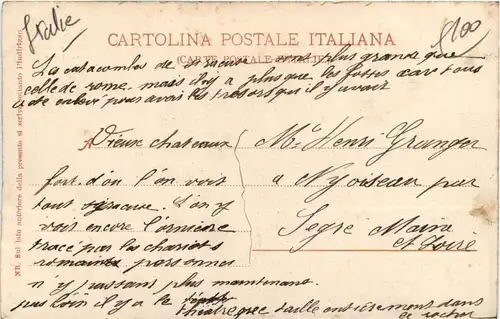 Italie
5/00
CARTOLINA POSTALE ITALIANA
(CARTE POSTALE D'ITALIE)
La catacombes de est plus grande que
celle de rome, mais il y a plus que les fosses car tous
a été enlevé pour avoir les trésors qu'il y avait
Vieux chateaux
fort. d'ou l'on voit
tout . l'on y
voit encore l'orniere
tracé par les chariots
romains personnes
n'y passant plus maintenant.
pas loin il y a le
théatre grec taillé entièrement dans
le rocher
Mr Henri Granger
a Nyoiseau par
Segré Maine
et Loire
NB. Sul lato anteriore della presente si scrive soltanto l'indirizzo